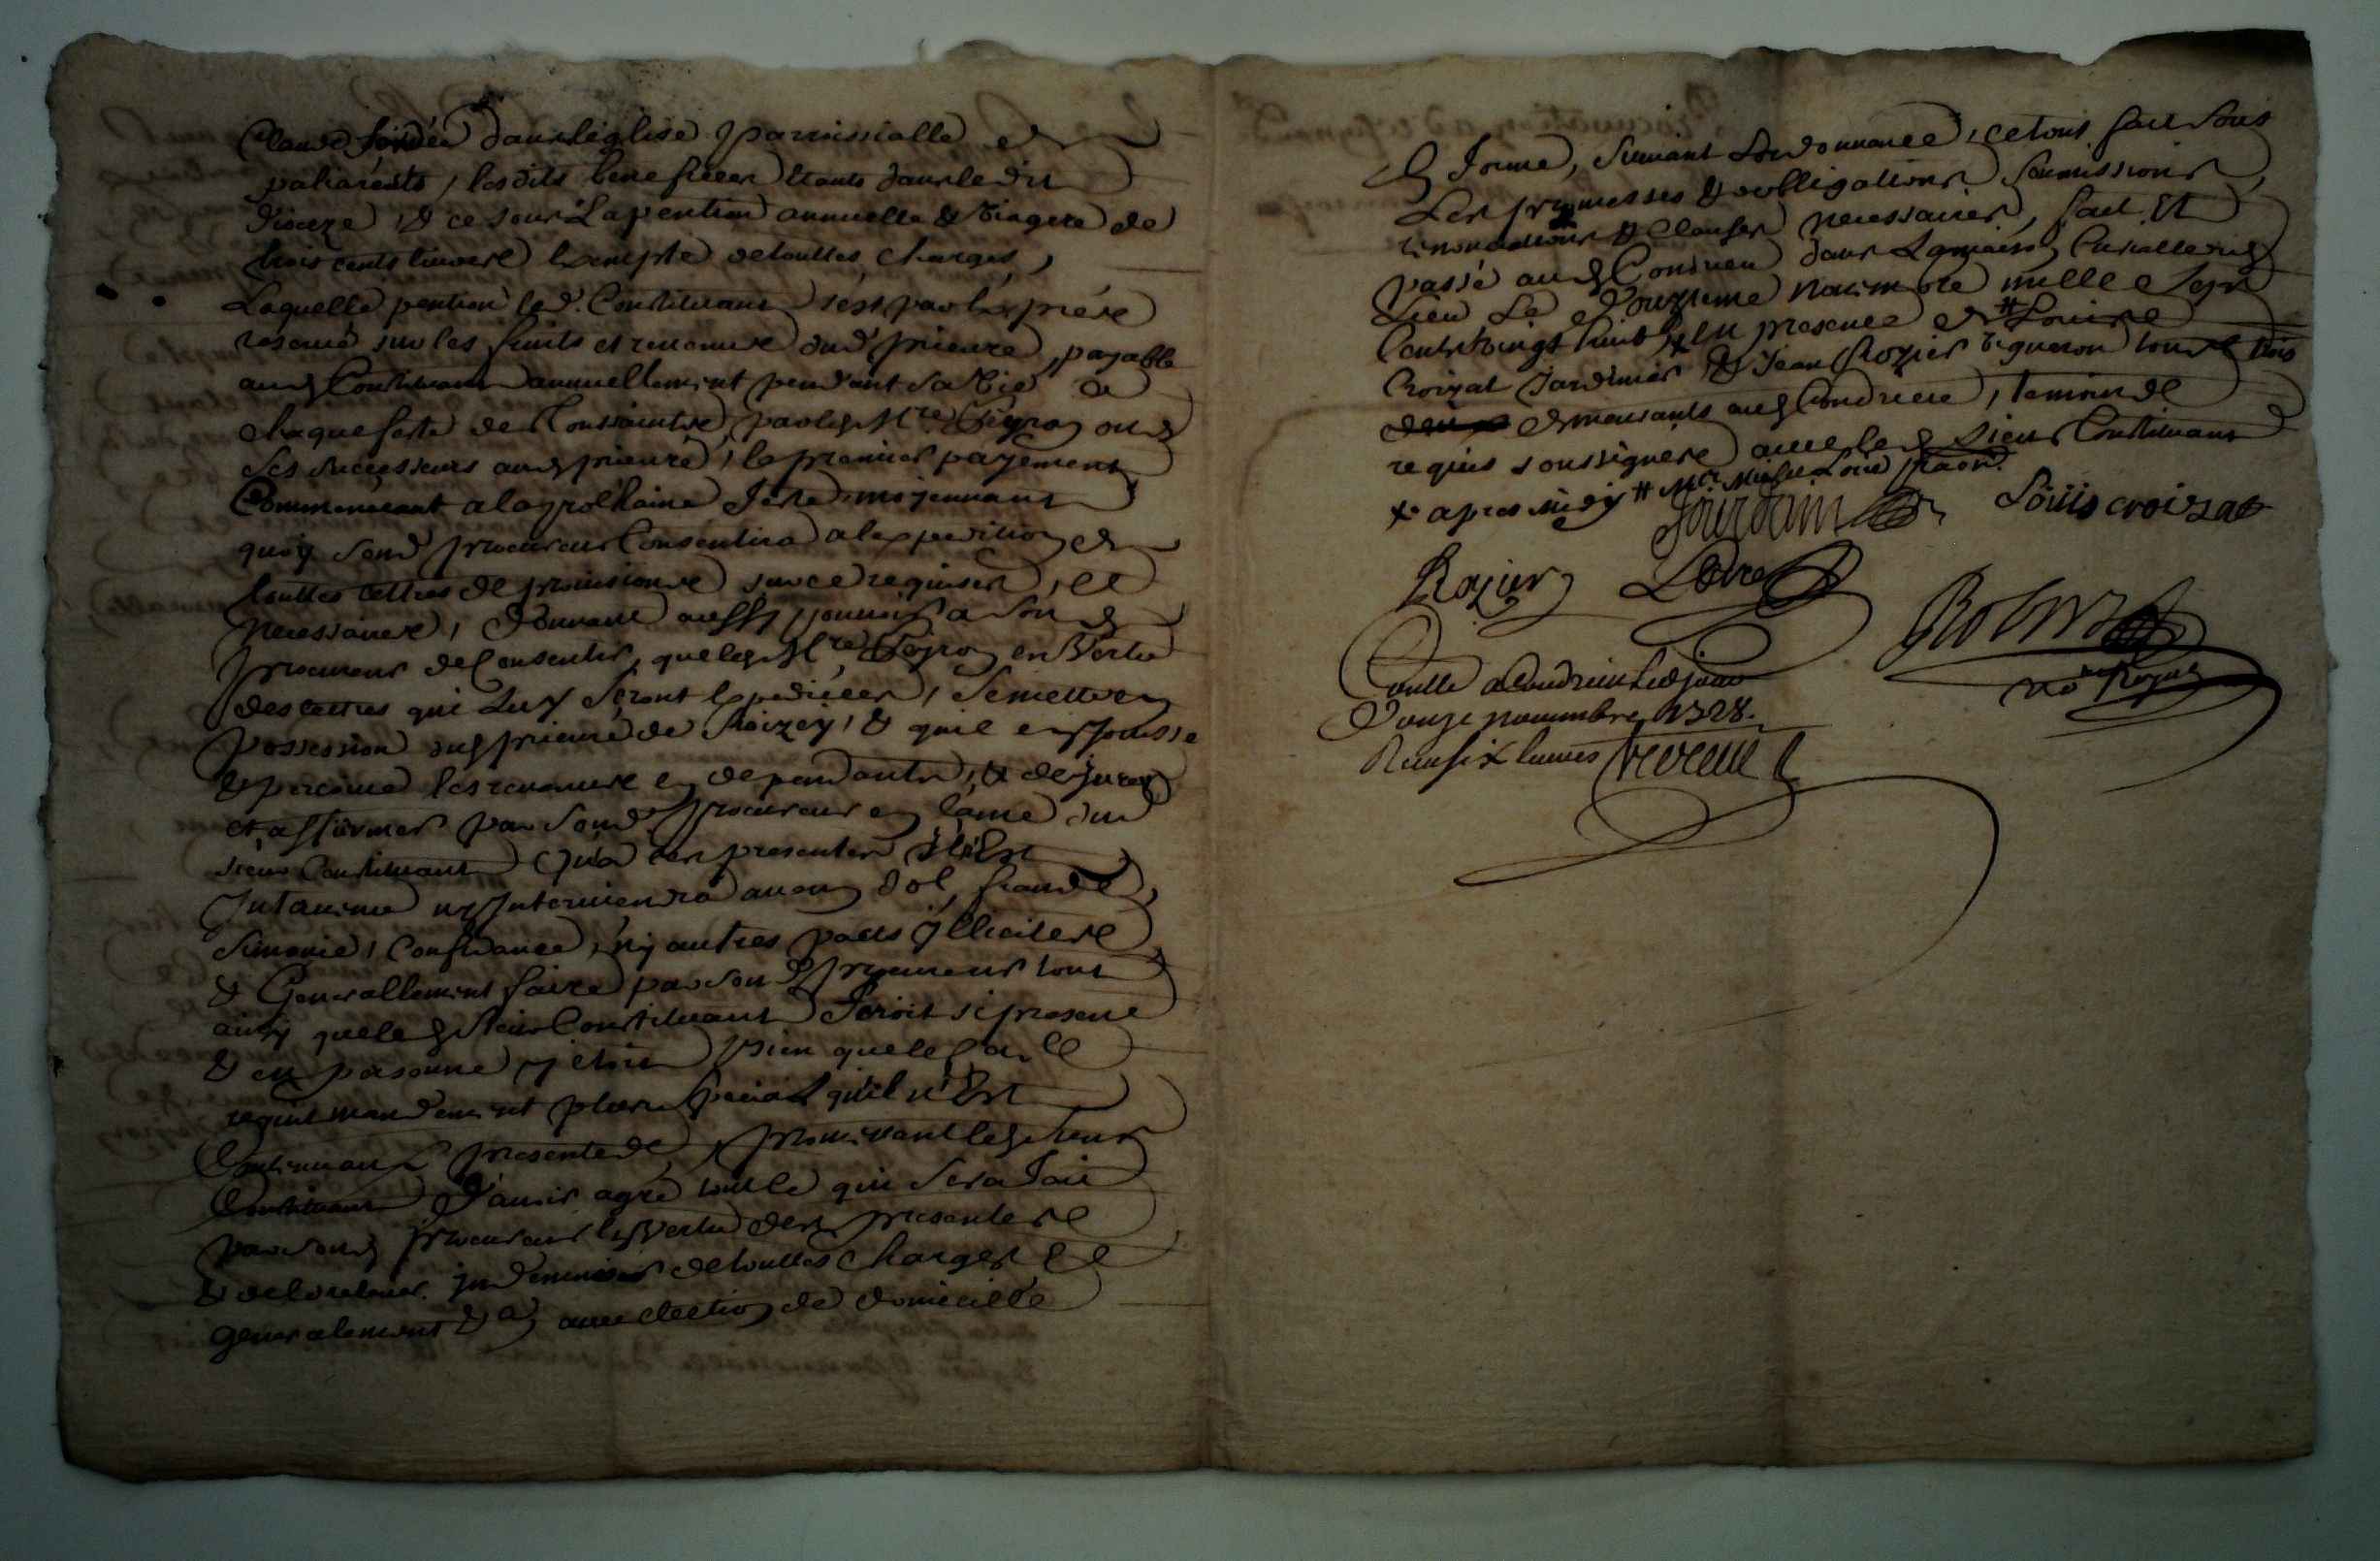 Claude fondée dans léglise parroissialle de
lesdits benefices étants dans ledit
dioceze, & ce sous La pention annuelle & viagere de
trois cents livres Exempte de touttes charges,
Laquelle pention led. Constituant s'est par Exprés
reservé sur les fruits et revenus dud. prieuré, payable
aud Constituant annuellement pendant sa vie a
chaque feste de Toussaints, par led Mre Peyron ou
ses successeurs aud prieuré, le premier payement
Commencant a la prochaine feste moyennant
quoy sond procureur Consentira a lexpedition de
touttes lettres de provisions sur ce requises, et
necessaires, donnant aussy pouvoir a son d
procureur de Consentir, que led Mre Peyron en Vertu
des lettres qui Luy seront Expediées, se mette en
possession dud prieuré de Roizey, & quil en jouisse
& percoive les revenus en dependants, & de jurer
et affirmer par sond procureur en lame dud
sieur Constituant qu'a ces presentes n'Est
Intervenu ny Interviendra aucun dol, fraude,
simonie, Confidance, ny autres pacts illicites
& Generallement faire par son d procureur tout
ainsy que led sieur Constituant feroit si present
& en personne y étoit bien que le cas
requit mandement plus special qu'il n'Est
Contenu aux presentes, promettant led sieur
Constituant d'avoir agréé tout ce qui sera fait
par sond procureur En Vertu des presentes
& de le relever indemniser de touttes charges Et
generalement &a avec election de domicille
En forme, suivant Lordonnance, ce tout fait sous
Les promesses & obligations soumissions,
renonciations & Clauses necessaires, fait Et
passé aud Condrieu dans La maison Curialle dud
Lieu Le douzieme novembre mille sept
Cents vingt huit x En presence de # Louis
Croizat Jardinier, & Jean Rozier vigneron tous trois
demeurants aud Condrieu, temoins
requis soussignés avec led sieur Constituant
x apres midy # Mre Loire
Jourdain Louis croizat
Rozier Loire
Robert
no re Royal
Conllé a Condrieu led jour
Douze novembre 1728.
Receu six livres